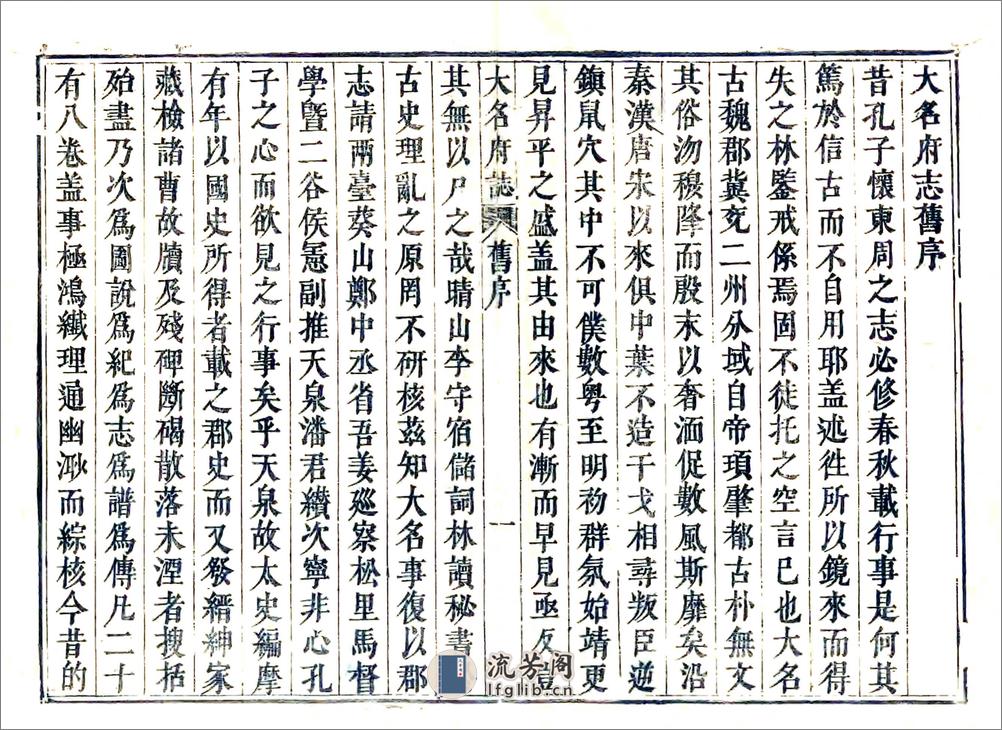 大名府志舊序
昔孔子懷東周之志必修春秋載行事是何其
篤於信古而不自用耶盖述徃所以鏡來而得
失之林鑒戒係焉固不徒托之空言已也大名
古魏郡冀兖二州分域自帝頊肇都古朴無文
其俗沕穆降而殷末以奢湎促數風斯靡矣沿
秦漢唐宋以來俱中葉不造干戈相尋叛臣逆
鎮鼠穴其中不可僕數粤至明初群氛始靖更
見昇平之盛盖其由來也有漸而早見亟反豈
大名府誌 舊序 一
其無以尸之哉晴山李守宿儲詞林讀秘書
古史理亂之原罔不研核茲知大名事復以郡
志請兩臺葵山鄭中丞省吾姜廵察松里馬督
學曁二谷侯憲副推天泉潘君纘次寧非心孔
子之心而欲見之行事矣乎天泉故太史編摩
有年以國史所得者載之郡史而又發縉紳家
藏檢諸曹故牘及殘碑斷碣散落未湮者搜括
殆盡乃次爲圖說爲紀爲志爲譜爲傳凡二十
有八卷盖事極鴻纖理通幽渺而綜核今昔的
流芳阁
lfglib.cn